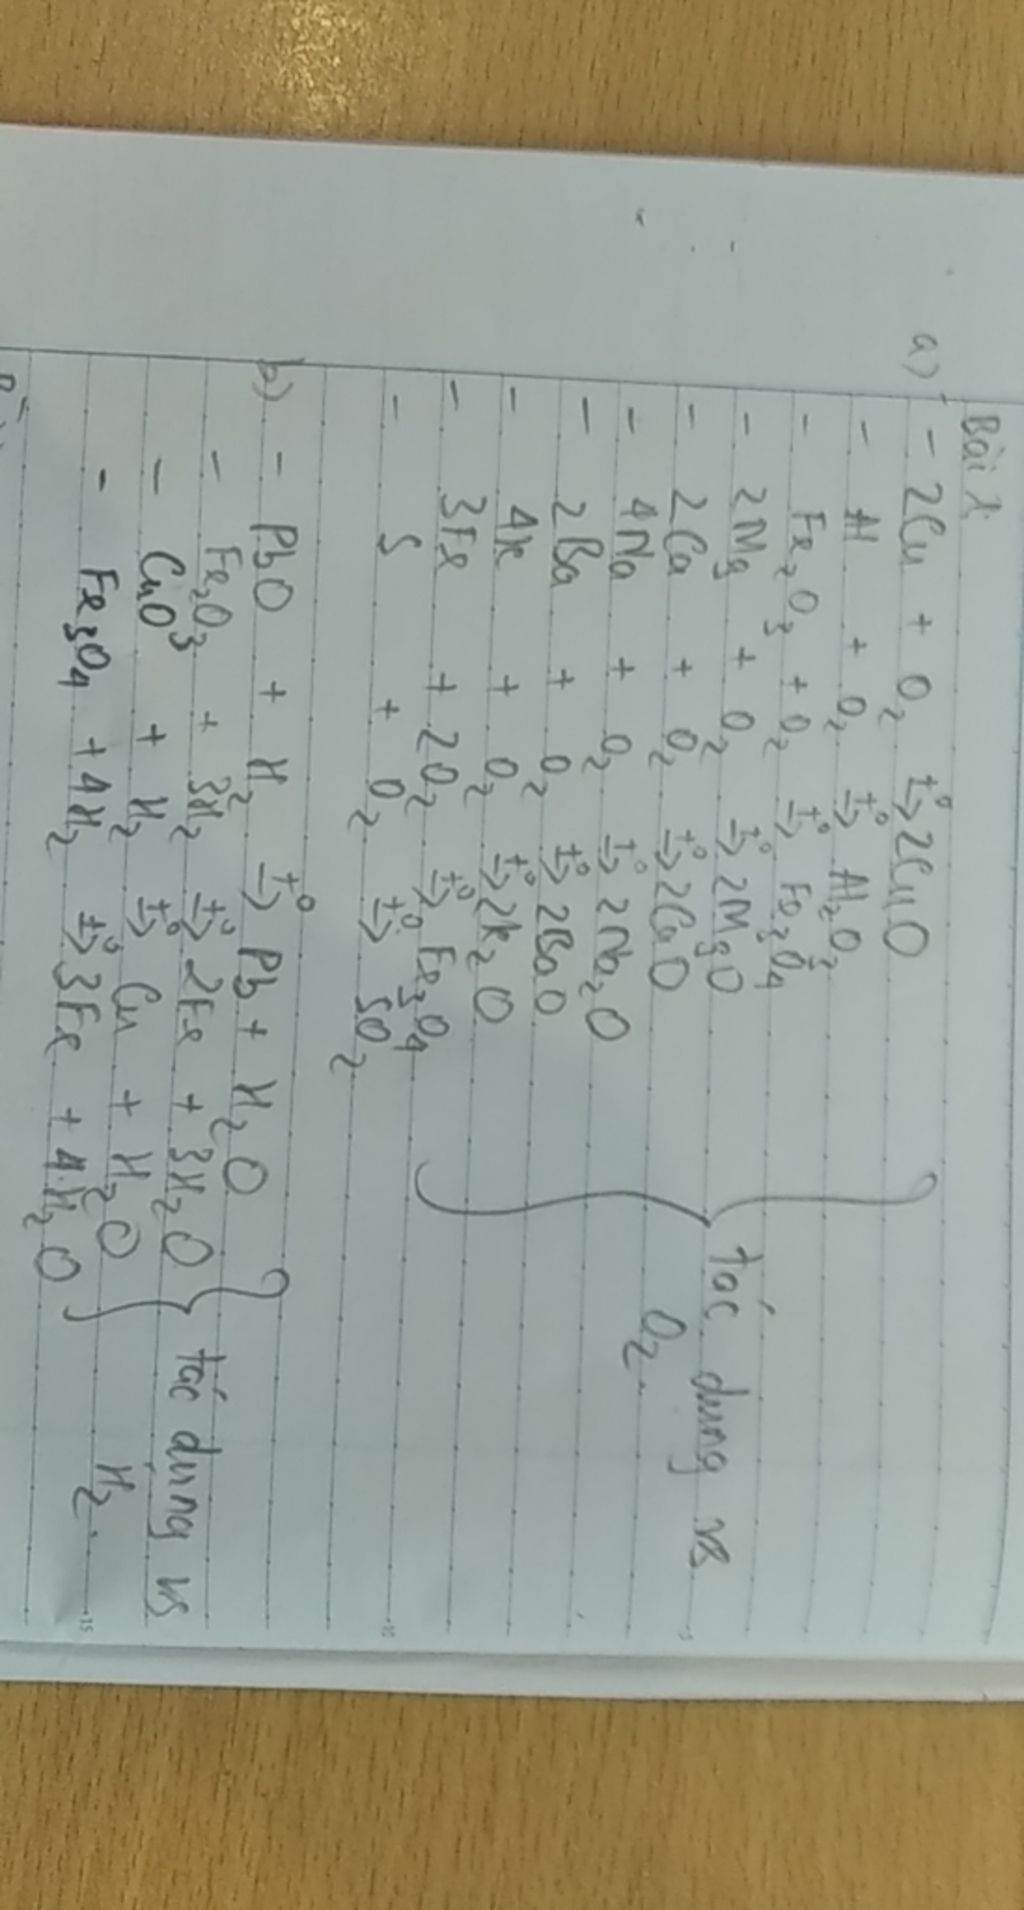 Bài 1.
a) - 2Cu + O₂ t°→ 2CuO
- Al + O₂ t°→ Al₂O₃
- Fe₂O₃ + O₂ t°→ Fe₃O₄
- 2Mg + O₂ t°→ 2MgO
- 2Ca + O₂ t°→ 2CaO
- 4Na + O₂ t°→ 2Na₂O
- 2Ba + O₂ t°→ 2BaO
- 4K + O₂ t°→ 2K₂O
- 3Fe + 2O₂ t°→ Fe₃O₄
- S + O₂ t°→ SO₂
tác dụng vs
O₂.
b) - PbO + H₂ t°→ Pb + H₂O
- Fe₂O₃ + 3H₂ t°→ 2Fe + 3H₂O
- CuO + H₂ t°→ Cu + H₂O
- Fe₃O₄ + 4H₂ t°→ 3Fe + 4H₂O
tác dụng vs
H₂.